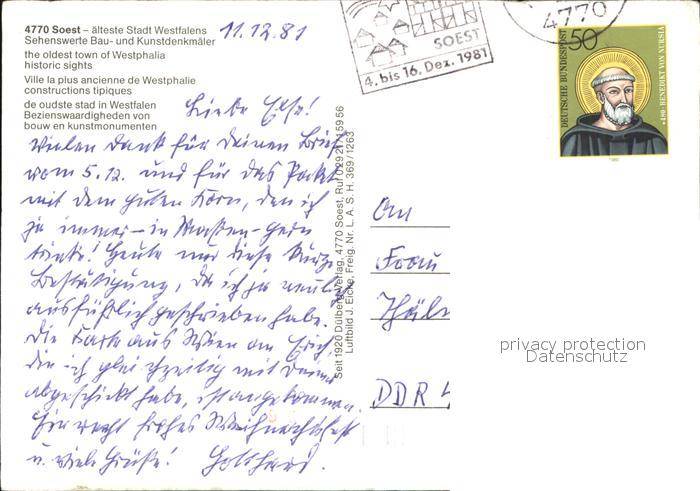 4770 Soest – älteste Stadt Westfalens
Sehenswerte Bau- und Kunstdenkmäler
the oldest town of Westphalia
historic sights
Ville la plus ancienne de Westphalie
constructions tipiques
de oudste stad in Westfalen
Bezienswaardigheden von
bouw en kunstmonumenten
11.12.81
Liebe Else!
vielen Dank für Deinen Brief
vom 5.12. und für das Paket
mit dem guten Korn, den ich
ja immer – in Maßen – gern
trinke! Heute nur diese kurze
Bestätigung, da ich ja neulich
ausführlich geschrieben habe.
Die Karte aus Wien an Erich,
die ich gleichzeitig mit Deiner
abgeschickt habe, ist angekommen.
Ein recht frohes Weihnachtsfest
u. viele Grüße! Gotthard.
Seit 1920 Dülberg-Verlag, 4770 Soest, Ruf 02921/15956
Luftbild J. Eicke, Freig. Nr. L. A. S. H. 369/1263
SOEST
4. bis 16. Dez. 1981
4770
DEUTSCHE BUNDESPOST
50
*480 · BENEDIKT VON NURSIA
1980
An
Frau
DDR
privacy protection
Datenschutz